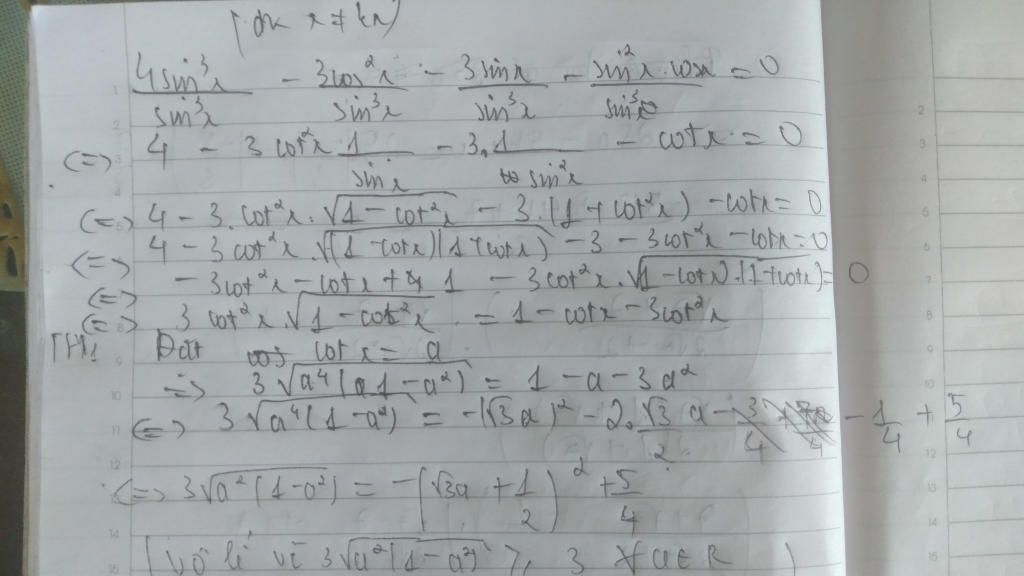 (đk x ≠ kπ)
4sin³x/sin³x - 3cos²x/sin³x - 3sinx/sin³x - sin²x.cosx/sin³x = 0
(=) 4 - 3 cot²x.1/sin x - 3.1/sin²x - cotx = 0
(=) 4 - 3.cot²x.√(1 - cot²x) - 3.(1 + cot²x) - cotx = 0
(=) 4 - 3 cot²x.√((1 - cotx)(1+cotx)) - 3 - 3cot²x - cotx = 0
(=) - 3cot²x - cotx + 1 - 3cot²x.√((1 - cotx).(1+cotx)) = 0
(=) 3 cot²x.√(1 - cot²x) = 1 - cotx - 3cot²x
TH1 Đặt cot x = a
=> 3√(a⁴(a1 - a²)) = 1 - a - 3a²
(=) 3√(a⁴(1 - a²)) = -(√3a)² - 2.√3/2 a - 1/4 + 5/4
(=) 3√(a²(1-a²)) = -(√3a + 1/2)² + 5/4
(Vô lí vì 3√(a²(1 - a²)) ⩾ 3 ∀a∈R)